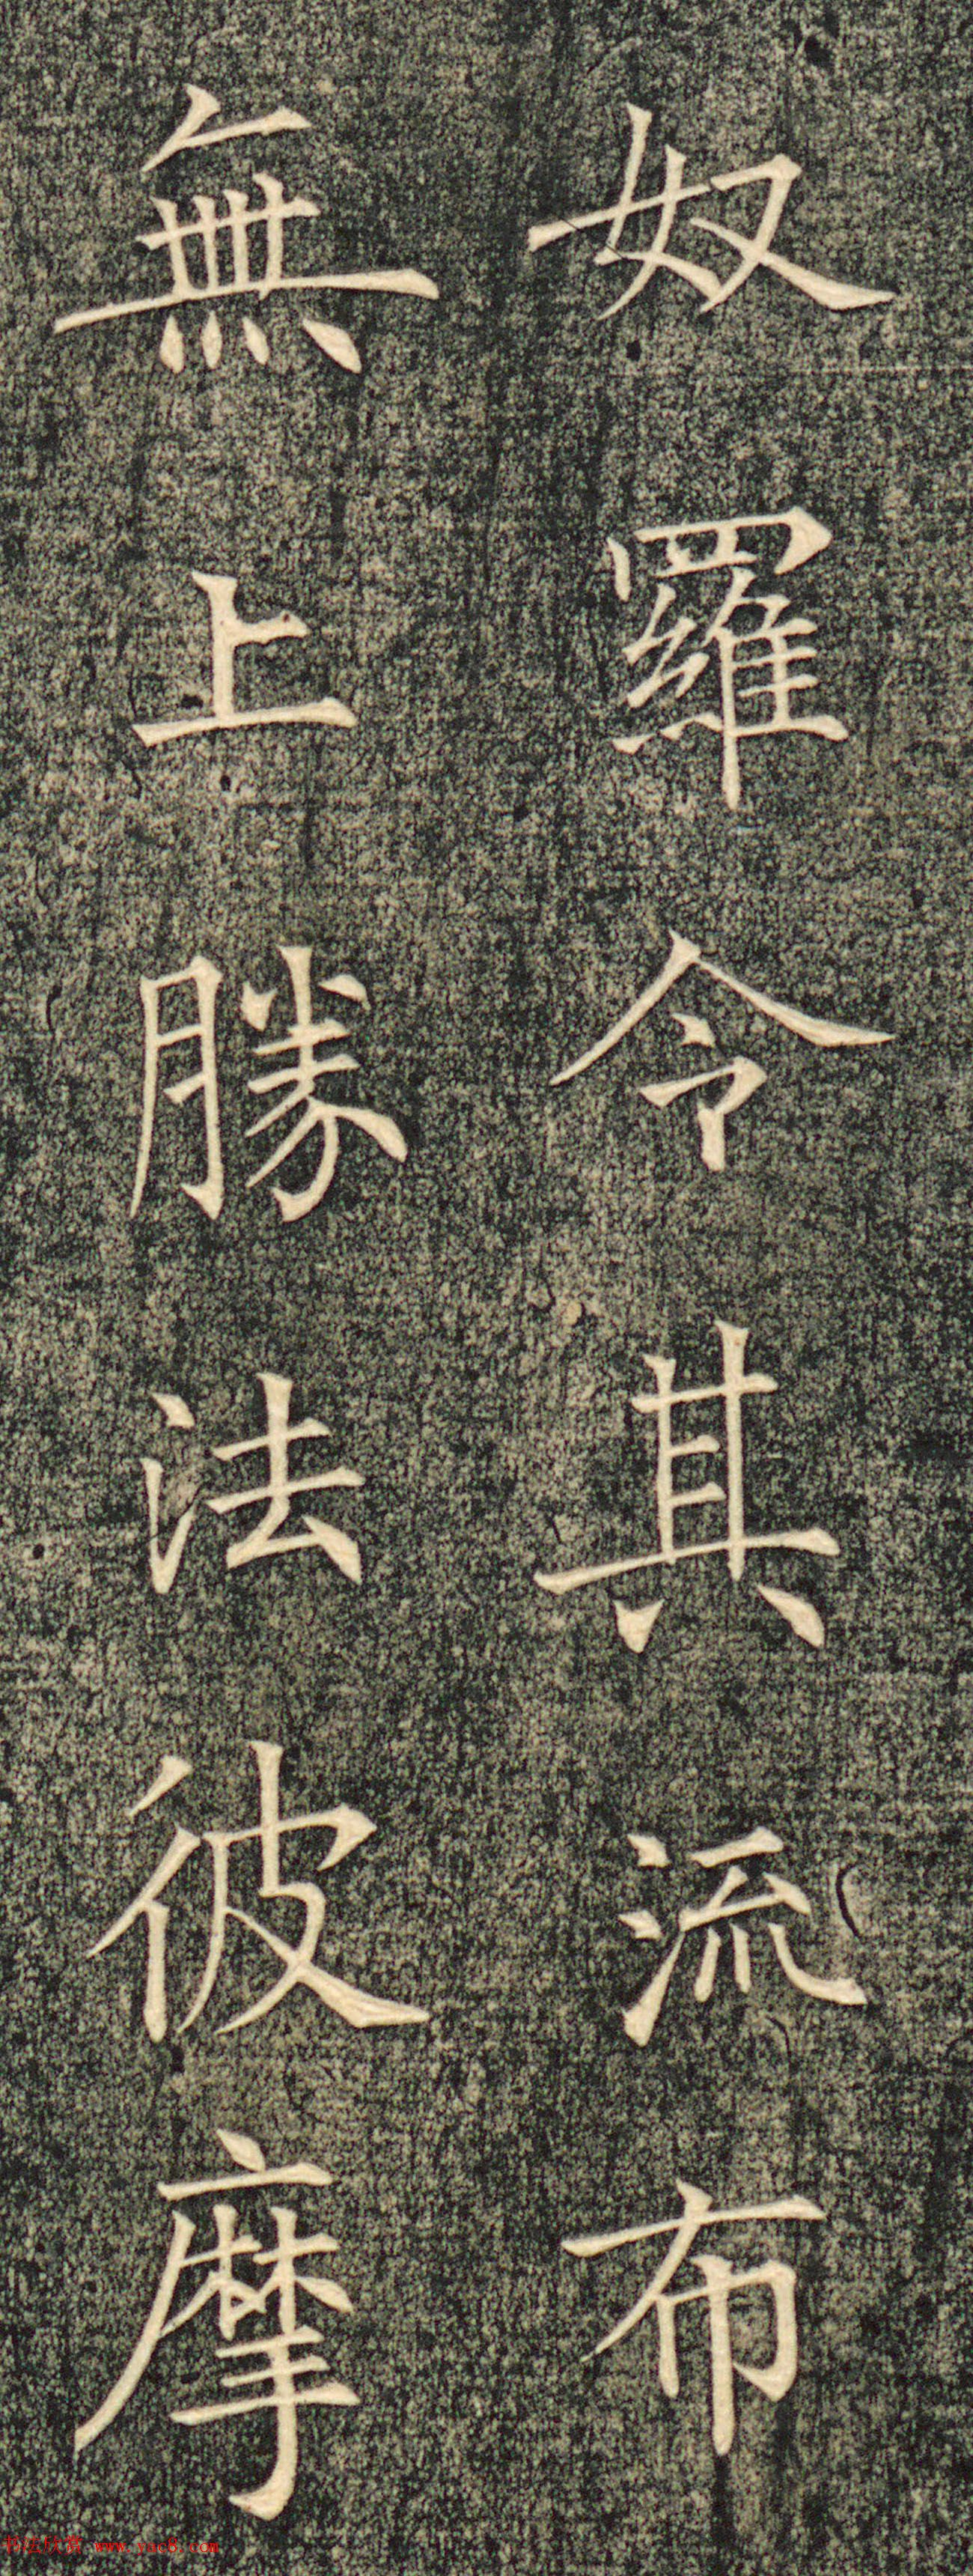 奴羅令其流布
無上勝法彼摩
书法欣赏 www.yac8.com